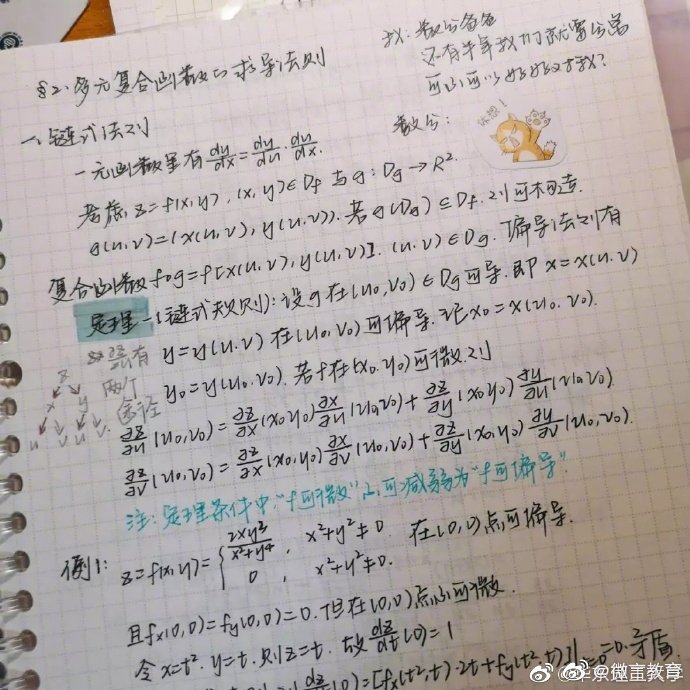 §2. 多元复合函数的求导法则
我: 数分爸爸
还有半年我们就要分离
可不可以好好对我?
数分:
休想!
一、链式法则
一元函数里有 dy/dx = dy/du · du/dx.
考虑 z=f(x,y), (x,y)∈Df 与 g: Dg → R².
g(u,v)=(x(u,v), y(u,v)). 若 g(Dg) ⊆ Df. 则可构造
复合函数 f∘g = f[x(u,v), y(u,v)]. (u,v)∈Dg. 偏导法则有
定理一 (链式规则): 设 g 在 (u₀,v₀)∈Dg 可导. 即 x=x(u,v)
y=y(u,v) 在 (u₀,v₀) 可偏导. 记 x₀=x(u₀,v₀).
y₀=y(u₀,v₀). 若 f 在 (x₀,y₀) 可微. 则
有
两个
途径
z
x y
u v u v
∂z/∂u (u₀,v₀) = ∂z/∂x (x₀,y₀) ∂x/∂u (u₀,v₀) + ∂z/∂y (x₀,y₀) ∂y/∂u (u₀,v₀)
∂z/∂v (u₀,v₀) = ∂z/∂x (x₀,y₀) ∂x/∂v (u₀,v₀) + ∂z/∂y (x₀,y₀) ∂y/∂v (u₀,v₀).
注: 定理条件中 "f可微" 不可减弱为 "f可偏导".
例1: z=f(x,y)= { 2xy³/(x²+y⁴), x²+y²≠0 在(0,0)点可偏导.
0, x²+y²≠0.
且 fx(0,0)=fy(0,0)=0. 但在(0,0)点不可微.
令 x=t². y=t. 则 z=t. 故 dz/dt (0)=1
dz/dt (0)=[fx(t²,t)·2t+fy(t²,t)]|=0. 矛盾.
@微言教育